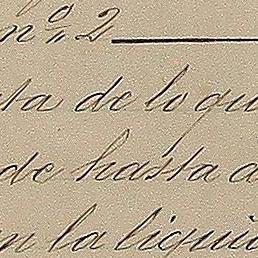 nº 2
ta de lo qu
de hasta a
n la liqui